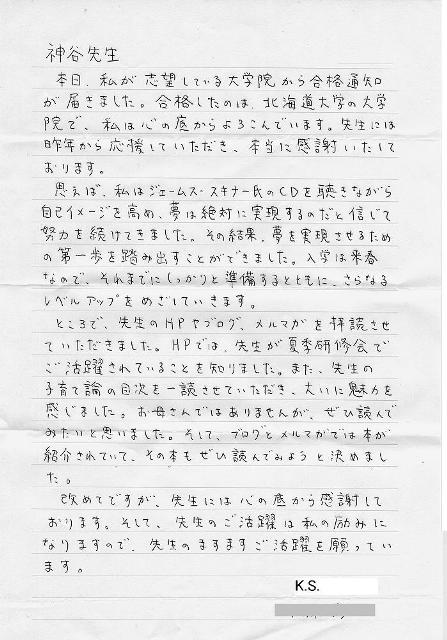 神谷先生
本日、私が志望している大学院から合格通知
が届きました。合格したのは、北海道大学の大学
院で、私は心の底からよろこんでいます。先生には
昨年から応援していただき、本当に感謝いたして
おります。
思えば、私はジェームス・スキナー氏のCDを聴きながら
自己イメージを高め、夢は絶対に実現するのだと信じて
努力を続けてきました。その結果、夢を実現させるため
の第一歩を踏み出すことができました。入学は来春
なので、それまでにしっかりと準備するとともに、さらなる
レベルアップをめざしていきます。
ところで、先生のHPやブログ、メルマガを拝読させ
ていただきました。HPでは、先生が夏季研修会で
ご活躍されていることを知りました。また、先生の
子育て論の目次を一読させていただき、大いに魅力を
感じました。お母さんではありませんが、ぜひ読んで
みたいと思いました。そして、ブログとメルマガでは本が
紹介されていて、その本もぜひ読んでみようと決めまし
た。
改めてですが、先生には心の底から感謝して
おります。そして、先生のご活躍は私の励みに
なりますので、先生のますますご活躍を願ってい
ます。
K.S.